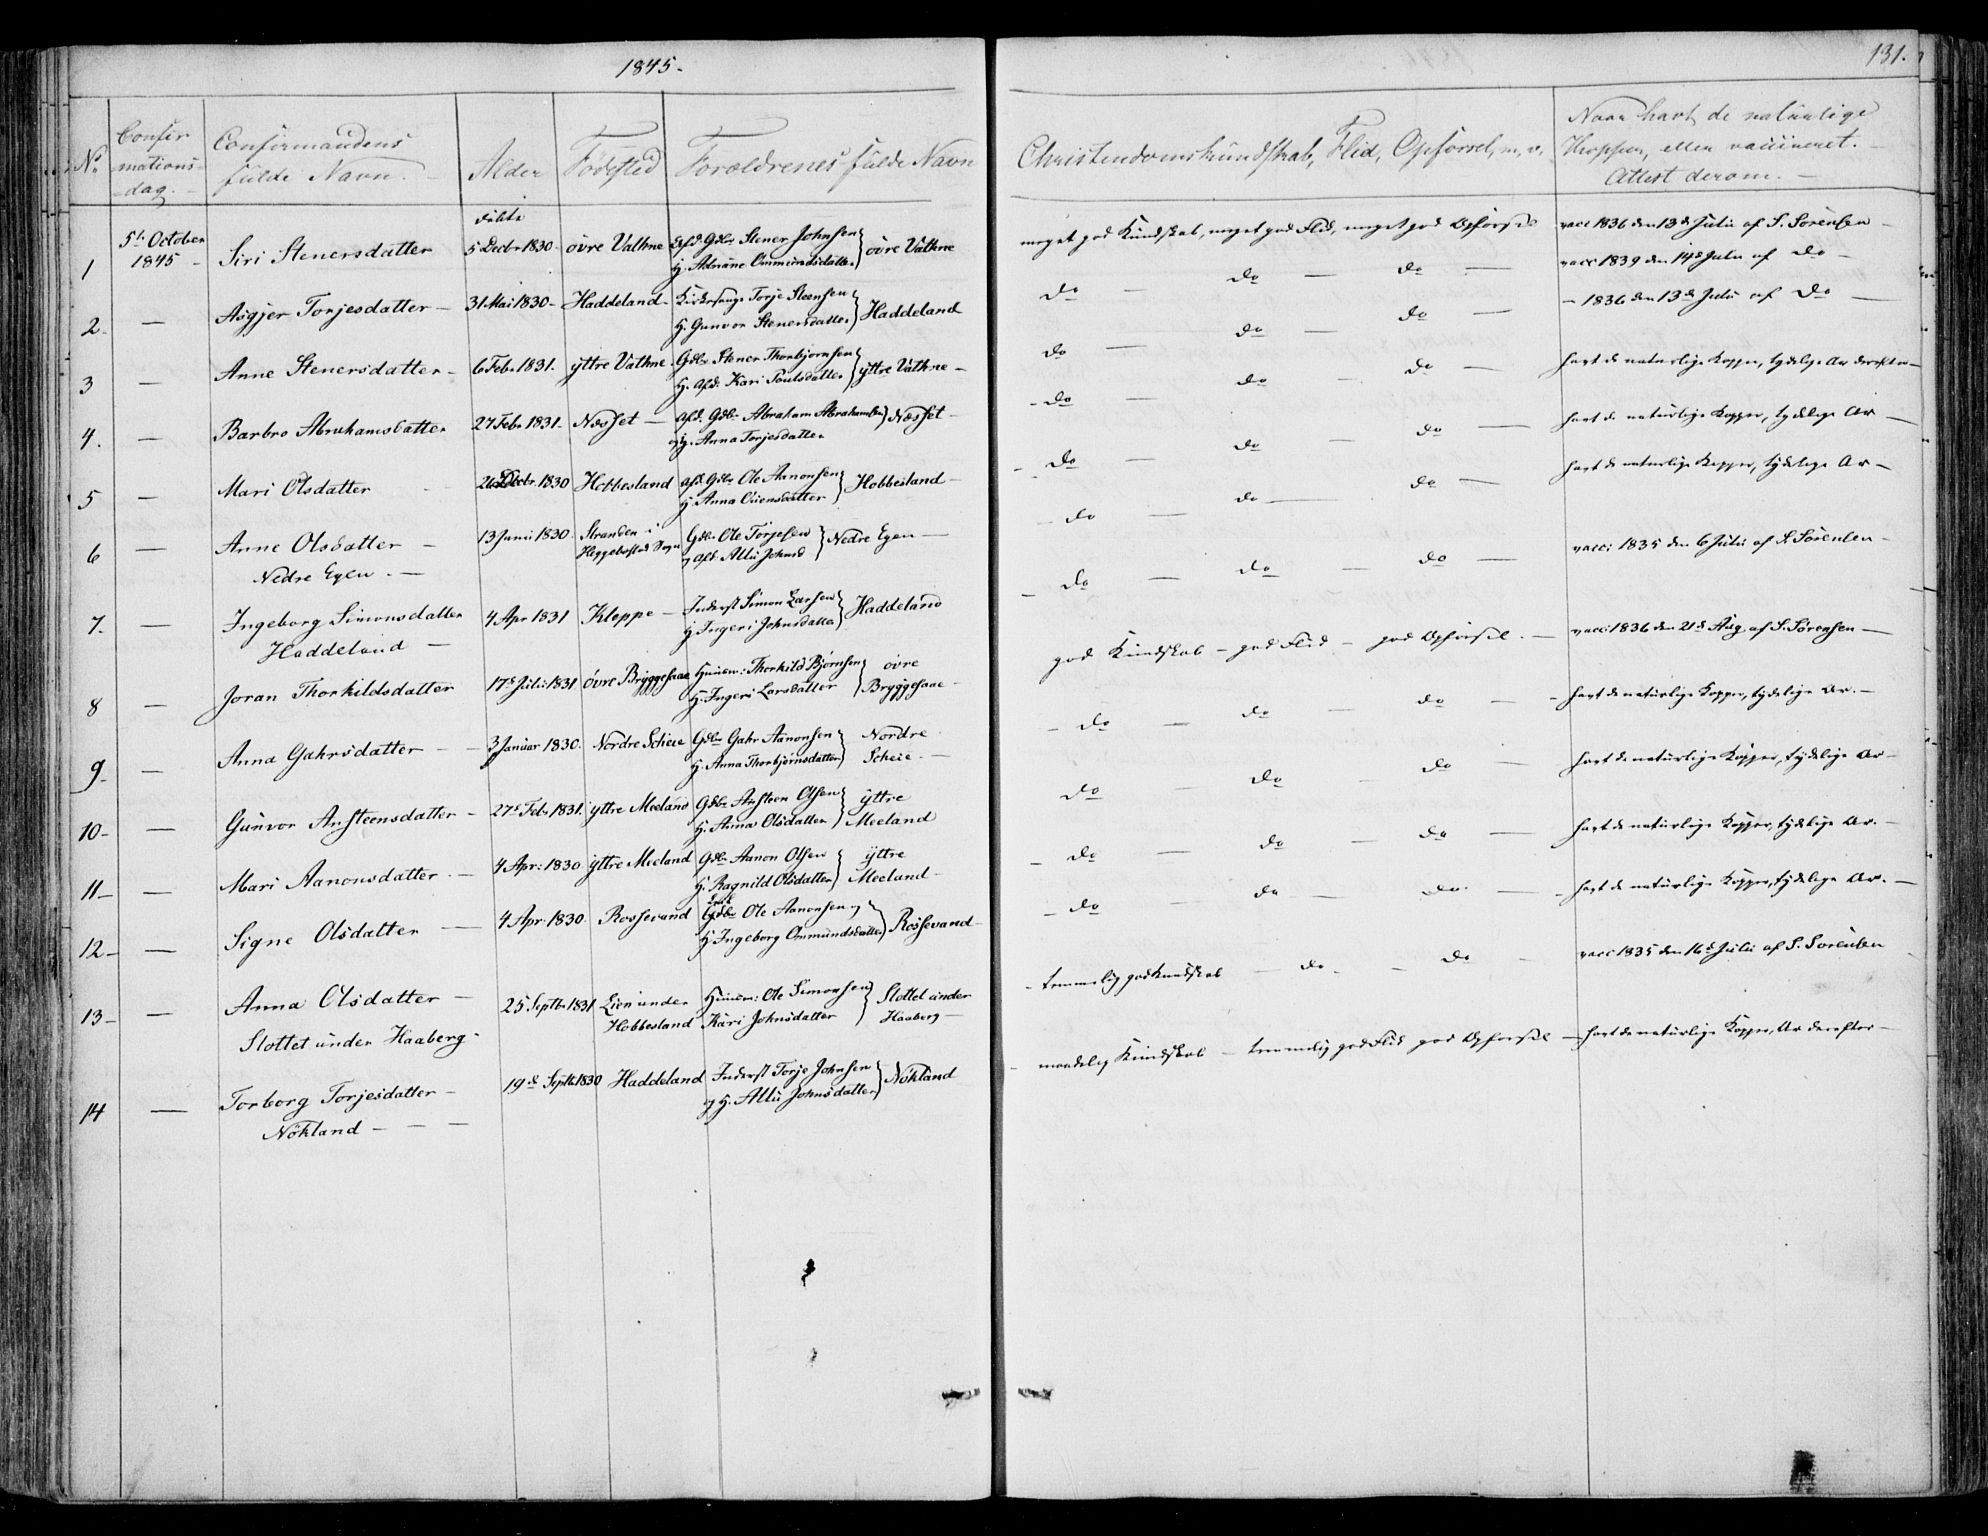 1845.
131.
No
Confir
mations-
dag.
Confirmandens
fulde Navn.
Alder
Födested
Foraldrenes fulde Navn
Christendomskundskab, Flid, Opförsel, m, v.
Naar havt de naturlige
Kopper, eller vaccineret.
Attest derom.
döbt
1 5te October 1845 - Siri Stenersdatter 5 Decbr 1830 - övre Vathne Gdbr Stener Johnsen H. Adriane Ommundsdatter } övre Vathne
2. — Asgjer Torjesdatter — 31 Mai 1830 - Haddeland - Kirkesanger Torje Steensen H. Gunvor Stenersdatter } Haddeland
3 — Anne Stenersdatter - 6 Febr 1831. yttre Vathne Gdbr Stener Thorbjornsen H. afd. Kari Poulsdatter } yttre Vathne -
4. — Barbro Abrahamsdatter 27 Febr 1831. Næsset — afd. Gdbr Abraham Abrahamsen og H. Anna Torjesdatter } Næsset -
5 — Mari Olsdatter Decbr 1830 Hobbesland afd Gdbr Ole Aanonsen H. Anna Ouensdatter } Hobbesland -
6 — Anne Olsdatter — 13 Junii 1830 Stranden i Gdbr Ole Torjesen } Nedre Egen —
Nedre Egen. — Heggebostad Sogn og afd. Allu Johnsd
7. — Ingeborg Simonsdatter 4 Apr 1831 Kleppe — Inderst Simon Larsen H Ingeri Johnsdatter } Haddeland
Haddeland —
8 — Joran Thorkildsdatter 17de Juli 1831 övre Bryggesaae Huusm: Thorkild Bjørnsen H. Ingeri Larsdatter } övre Bryggesaae -
9 — Anna Gahrsdatter - 3 Januar 1830. Nordre Scheie Gdbr Gahr Aanonsen H. Anna Thorbjörnsdatter } Nordre Scheie. —
10 - — Gunvor Ansteensdatter - 27de Febr 1831. yttre Meeland Gdbr Ansteen Olsen H. Anna Olsdatter } yttre Meeland
11 - — Mari Aanonsdatter - 4 Apr: 1830 yttre Meeland Gdbr Aanon Olsen H. Ragnild Olsdatter } yttre Meeland -
12 - — Signe Olsdatter — 4 Apr 1830. Rossevand Gdbr Ole Aanonsen og H Ingeborg Ommundsdatter } Rossevand -
13 - — Anna Olsdatter — 25 Septbr 1831 Lien under Hobbesland Huusm: Ole Simonsen Kari Johnsdatter } Slottet under Haaberg -
Slottet under Haaberg -
14 — Torborg Torjesdatter - 19de Septbr 1830 Haddeland Inderst Torje Johnsen og H. Allu Johnsdatter } Nökland
Nökland - - -
meget god Kundskab, meget god Flid, meget god Opførsel vacc 1836 den 13de Julii af S. Sörensen -
do — do — do — vacc 1839 den 14de Julii af do -
do — do — do — - 1836 den 13de Julii af do —
- do — do - do — havt de naturlige Kopper, tydelige Ar derefter -
- do — do — do — havt de naturlige Kopper, tydelige Ar —
- do — do — do — havt de naturlige Kopper, tydelige Ar -
- do — do — do — vacci 1835 den 6 Julii af S. Sörensen -
god Kundskab - god Flid - god Opførsel. — vacci 1836 den 21de Aug af S. Sörensen —
- do — do — do — havt de naturlige Kopper, tydelige Ar. -
do — do — do — havt de naturlige Kopper, tydelige Ar -
- do — do — do — havt de naturlige Kopper, tydelige Ar. -
- do — do — do — havt de naturlige Kopper, tydelige Ar. —
- temmelig god Kundskab — do - - do - vacc 1835 den 16de Julii af S. Sörensen
- maadelig Kundskab — temmelig god Flid god Opførsel — havt de naturlige Kopper, Ar derefter -